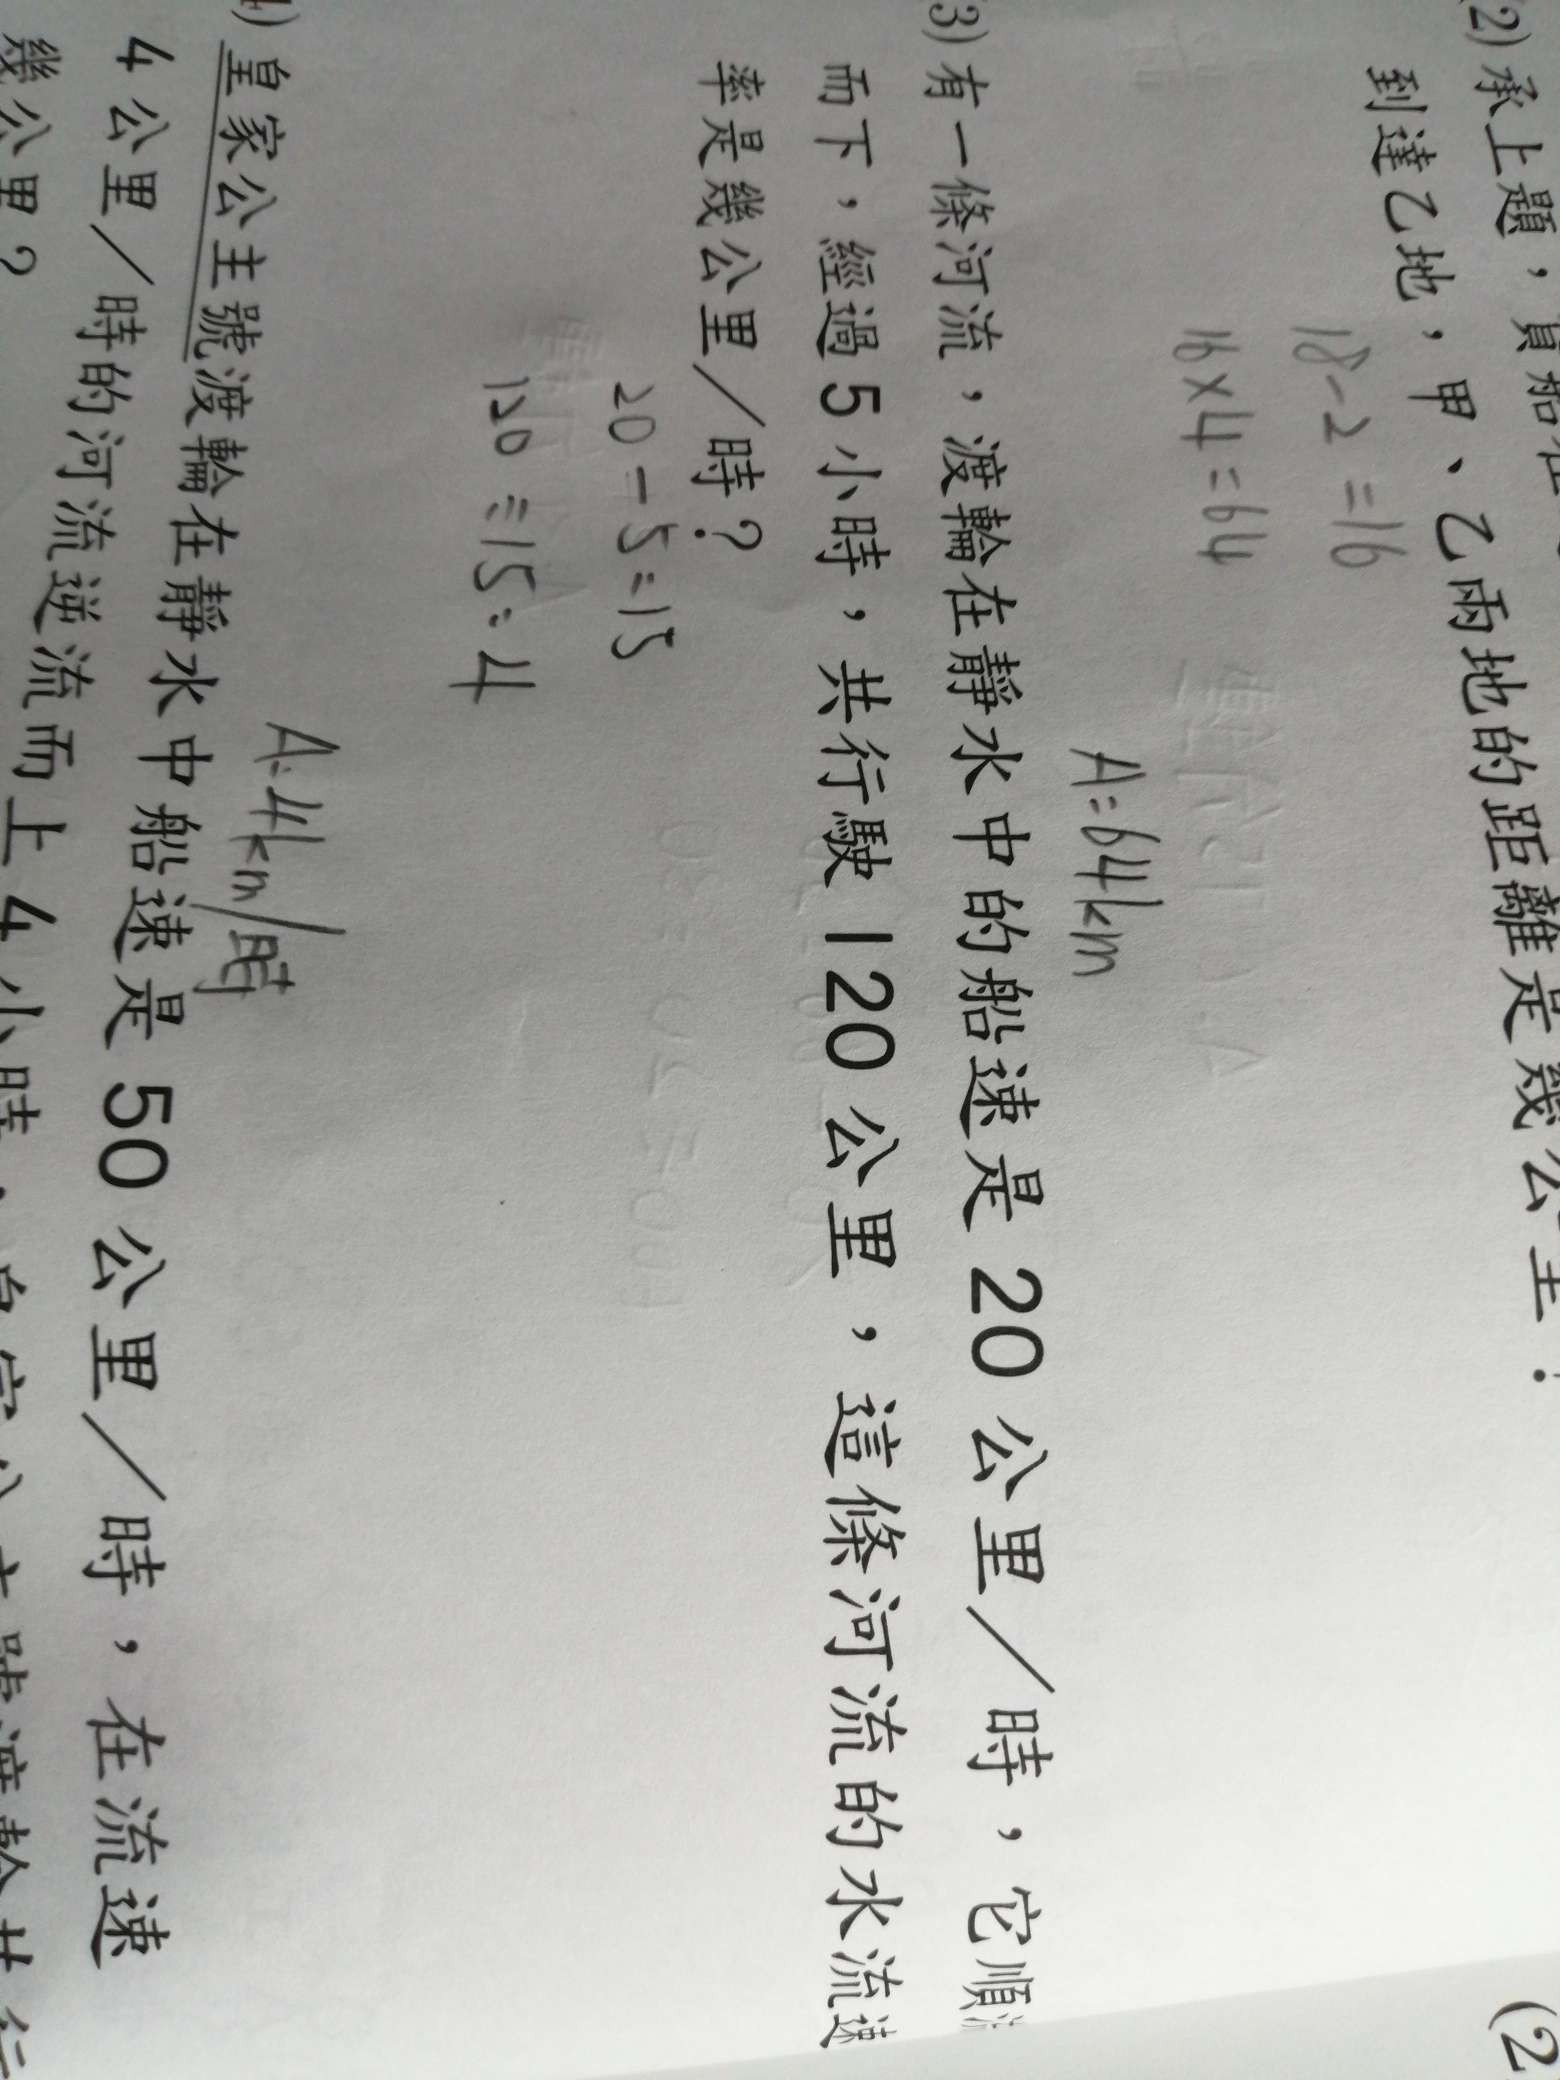 (2)承上題，貨船在
到達乙地，甲、乙兩地的距離是幾公里？
18-2=16
16×4=64
A:64km
3)有一條河流，渡輪在靜水中的船速是20公里／時，它順流
而下，經過5小時，共行駛120公里，這條河流的水流速
率是幾公里／時？
20-5=15
120÷15=4
A:4km/時
皇家公主號渡輪在靜水中船速是50公里／時，在流速
4公里／時的河流逆流而上4小時，皇家公主號渡輪共行
幾公里？
(2